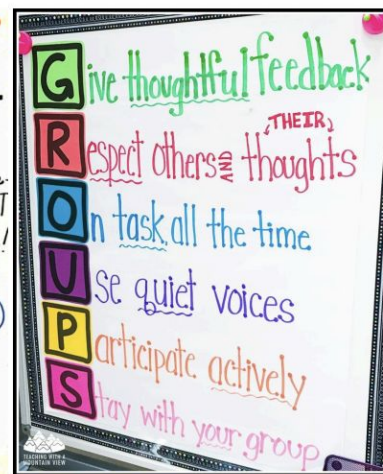 Give thoughtful feedback
Respect others AND THEIR thoughts
On task all the time
Use quiet voices
Participate actively
Stay with your group
TEACHING WITH A
MOUNTAIN VIEW